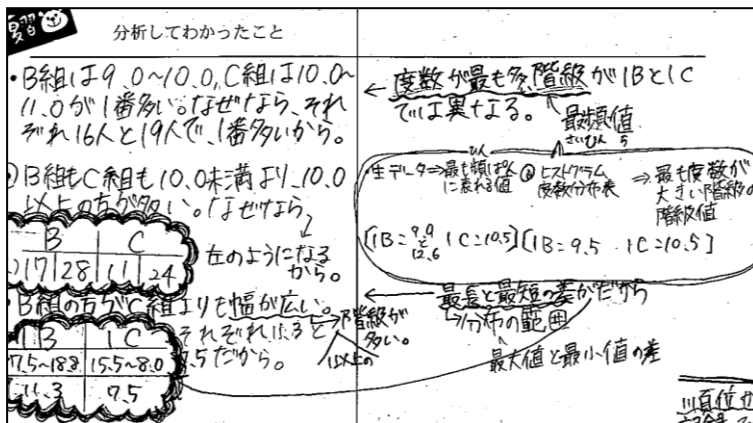 習
分析してわかったこと
・B組は9.0~10.0,C組は10.0~
11.0が1番多い。なぜなら、それ
ぞれ16人と19人で、1番多いから。
B組もC組も10.0未満より、10.0
以上の方が多い。なぜなら、
B C
17 28 11 24
左のようになる
から。
・B組の方がC組よりも幅が広い。
それぞれ11.3と
7.5だから。
階級が
多い。
1以上の
1B 1C
7.5~18.8 15.5~8.0
11.3 7.5
← 度数が最も多い階級が1Bと1C
では異なる。
最頻値
さいひんち
生データ⇒最も頻ぱん
ひん
に表れる値
ヒストグラム
度数分布表
⇒ 最も度数が
大きい階級の
階級値
[1B=9.9と12.6 1C=10.5] [1B=9.5 1C=10.5]
← 最長と最短の差がだから
→分布の範囲
最大値と最小値の差